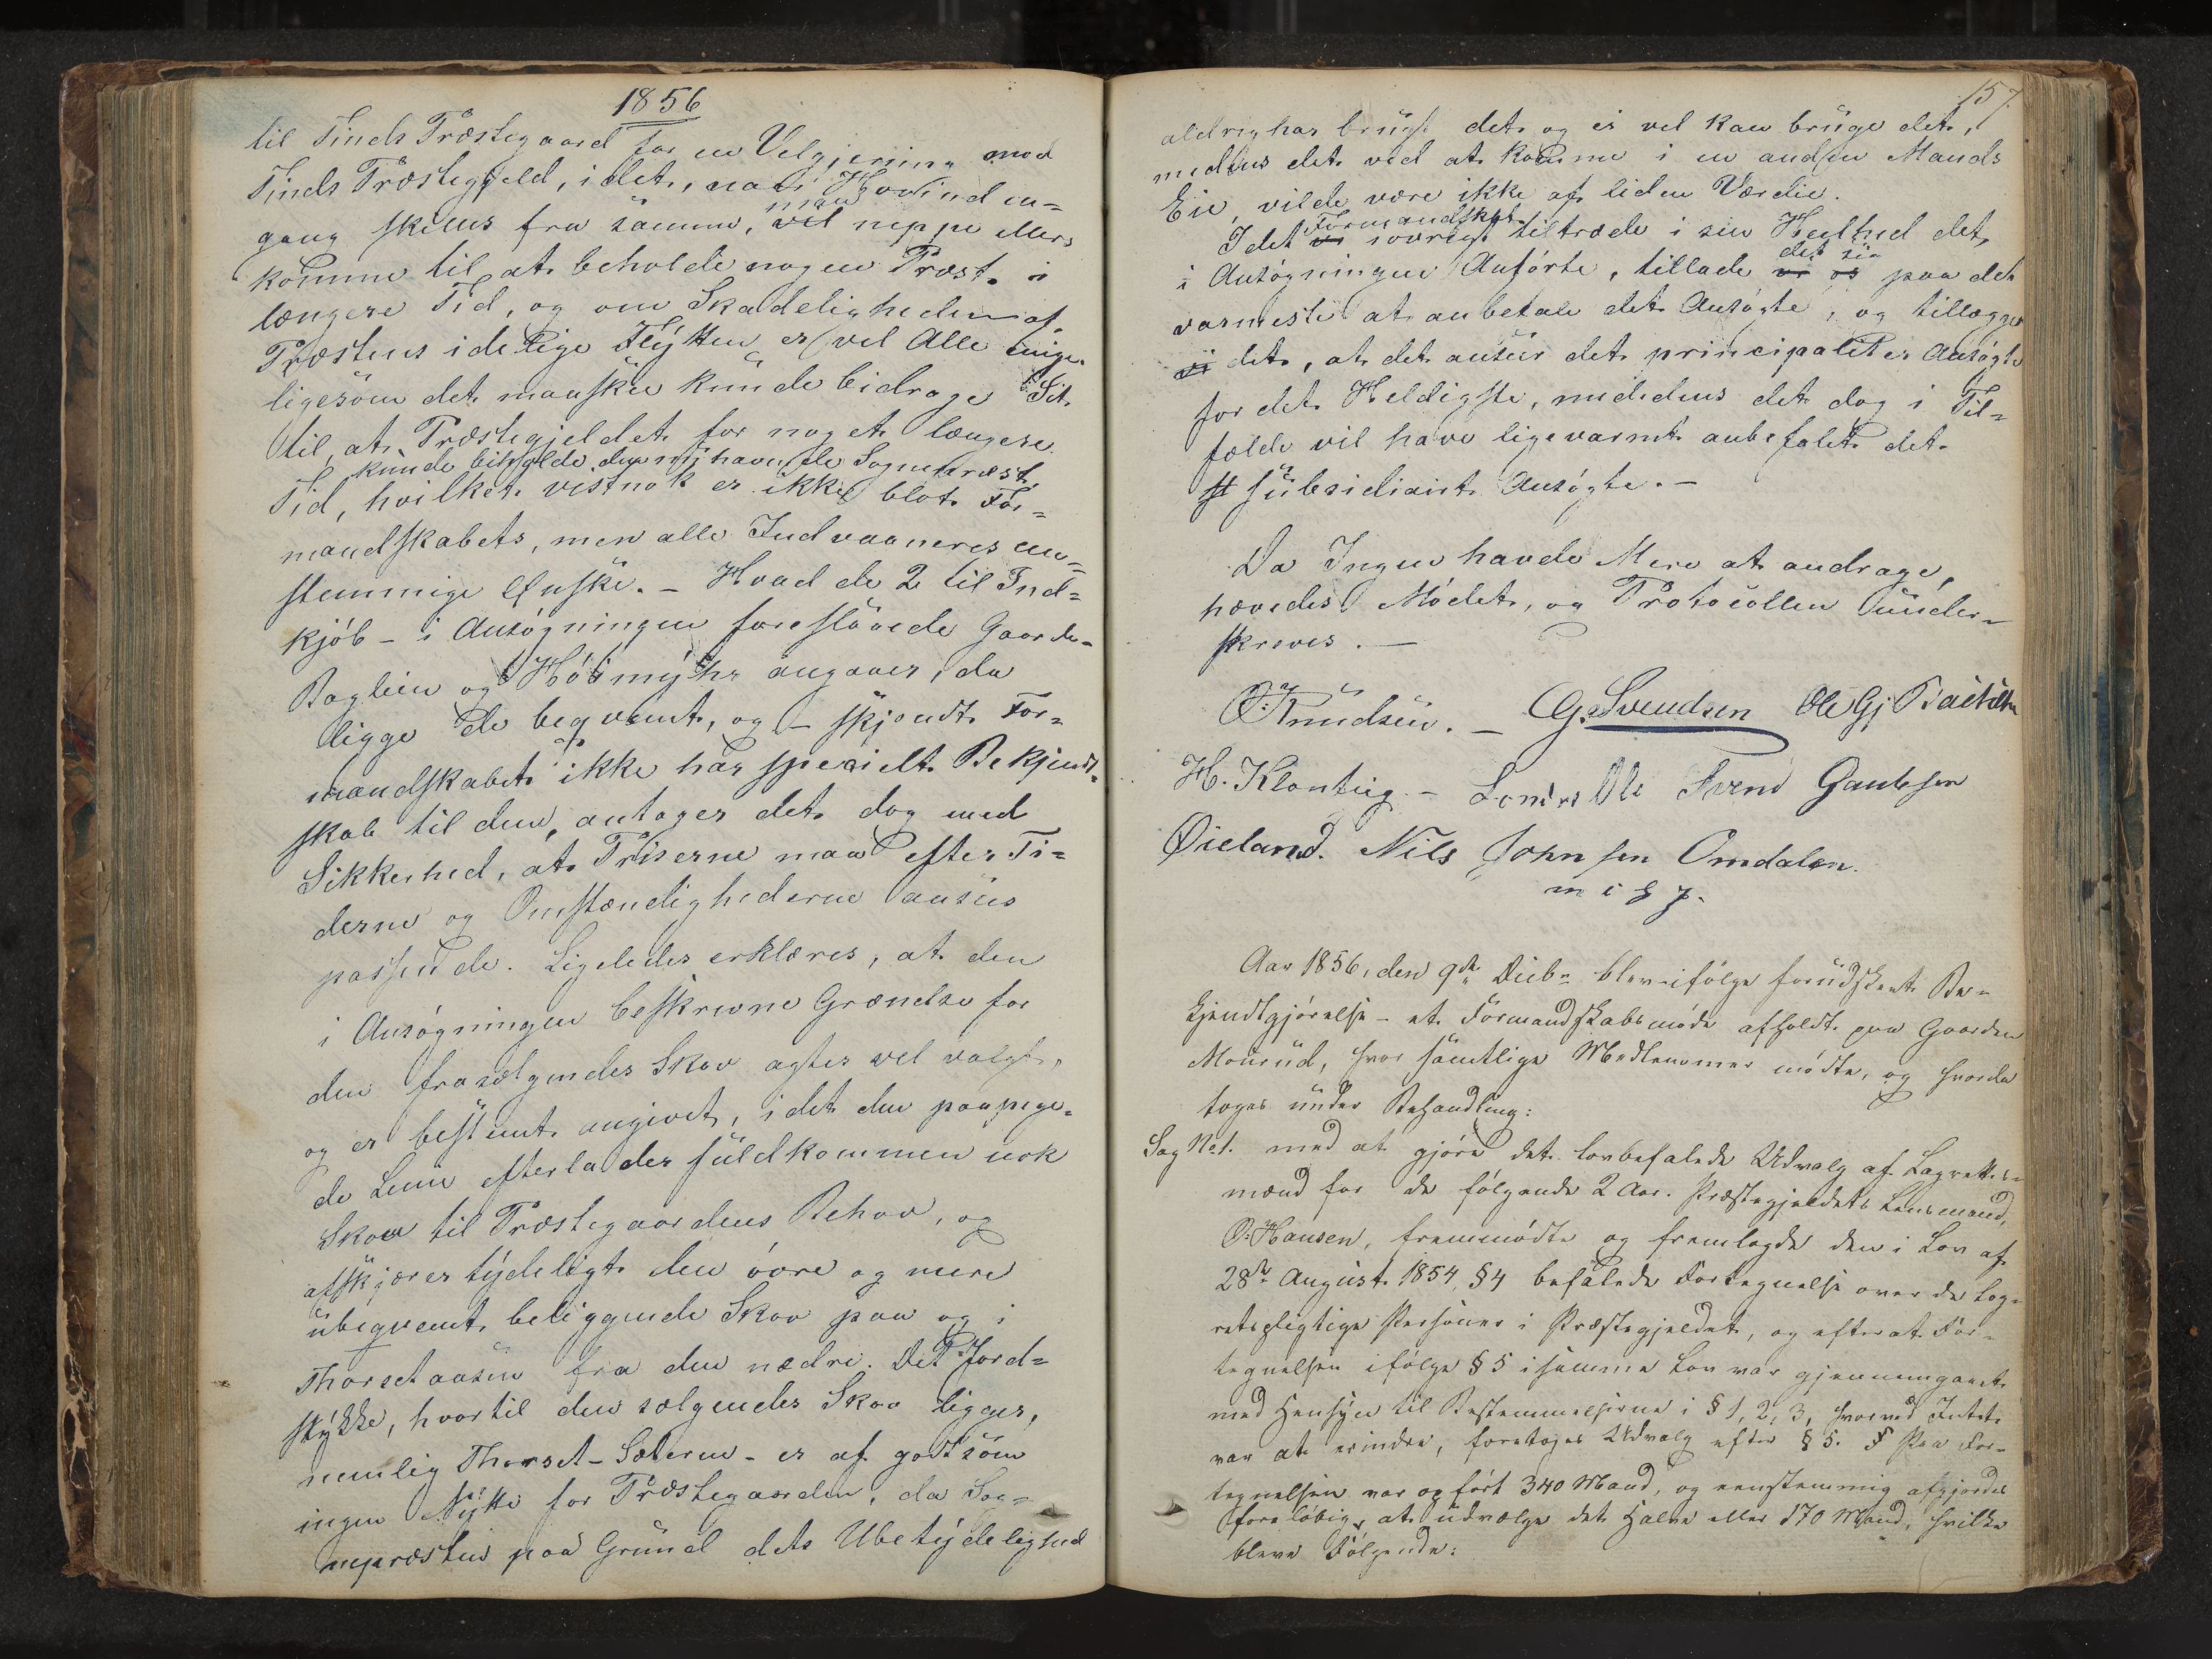 1856
til Tinds Præstegaard for en Velgjerning mod
Tinds Præstegjeld, idet, naar Hovind en-
gang skilles fra samme, man vil neppe mere
komme til at beholde nogen Præst i
længere Tid, og om Skadeligheden af
Præstens idelige Flytten er vel Alle enige
ligesom det maaskee kunde bidrage Sit
til, at Præstegjeldet for noget længere
Tid, kunde beholde den nyhavende Sognepræst,
hvilket vistnok er ikke blot For-
mandskabets, men alle Indvaaneres en-
stemmige Ønske. - Hvad de 2 til Ind-
kjøb - i Ansøgningen foreslaaede Gaarde -
Bøglien og Høimyhr angaaer, da
ligge de beqvemt, og - skjøndt For-
mandskabet ikke har specielt Bekjendt-
skab til dem, antager det dog med
Sikkerhed, at Priserne maa efter Ti-
derne og Omstændighederne ansees
passende. Ligeledes erklæres, at den
i Ansøgningen beskrevne Grændse for
den frasælgendes Skov agtes vel valgt,
og er bestemt angivet, idet den paapege-
de Linie efterlader fuldkommen nok
Skov til Præstegaardens Behov, og
afskjærer tydeligt den øvre og mere
ubeqvemt beliggende Skov paa og i
Thorsetaasen fra den nedre. Det Jord-
stykke, hvortil den sælgendes Skov ligger,
nemlig Thorset-Sæteren - er af godt som
ingen Nytte for Præstegaarden, da Sog-
nepræsten paa Grund dets Ubetydelighed
157.
aldrig har brugt det og ei vel kan bruge det,
medens det ved at komme i en anden Mands
Eie, vilde være ikke af liden Værdie.
Idet Formandskabet vi iøvrigt tiltræde i sin Heelhed det
i Ansøgningen Anførte, tillade det sig vi os paa det
varmeste at anbefale det Ansøgte, og tillægger
vi det, at det anseer det principaliter Ansøgte
for det Heldigste, medens det dog i Til-
fælde vil have ligevarmt anbefalet det
st subsidiairt Ansøgte. -
Da Ingen havde Mere at andrage,
hævedes Mødet, og Protocollen under-
skreves. -
O. Knudsen. - G. Svendsen Ole Gj.
H. Klonteig. - Ole Svend Gautesen
Øieland. Nils Johnsen Omdalen.
Aar 1856, den 9de Decbr blev ifølge forudskeet Be-
kjendtgjørelse - et Formandskabsmøde afholdt paa Gaarden
Mourud, hvor samtlige Medlemmer mødte, og hvorda
toges under Behandling:
Sag No 1. med at gjøre det lovbefalede Udvalg af Lagrettes-
mænd for de følgende 2 Aar. Præstegjeldets Lensmand,
O. Hansen, fremmødte og fremlagde den i Lov af
28de August 1854, § 4 befalede Fortegnelse over de Lag-
retspligtige Personer i Præstegjeldet, og efterat For-
tegnelsen ifølge § 5 i samme Lov var gjennemgaaet
med Hensyn til Bestemmelserne i § 1, 2, 3, hvorved Intet
var at erindre, foretoges Udvalg efter § 5. Paa For-
tegnelsen var opført 340 Mand, og eenstemmig afgjordes
foreløbig, at udvælge det Halve eller 170 Mand, hvilke
bleve Følgende: